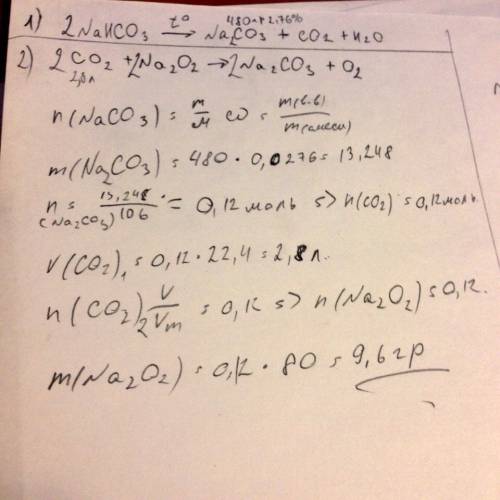 1) 2NaHCO3 →t° Na2CO3 + CO2 + H2O
480 гр 2,76%
2) 2CO2 + 2Na2O2 → 2Na2CO3 + O2
n(NaCO3) = m/M ω = m(в-в)/m(смеси)
m(Na2CO3) = 480 · 0,0276 = 13,248
n(Na2CO3) = 13,248/106 = 0,12 моль => n(CO2) = 0,12 моль
V(CO2)1 = 0,12 · 22,4 = 2,8 л.
n(CO2)2 V/Vm = 0,12 => n(Na2O2) = 0,12.
m(Na2O2) = 0,12 · 80 = 9,6 гр